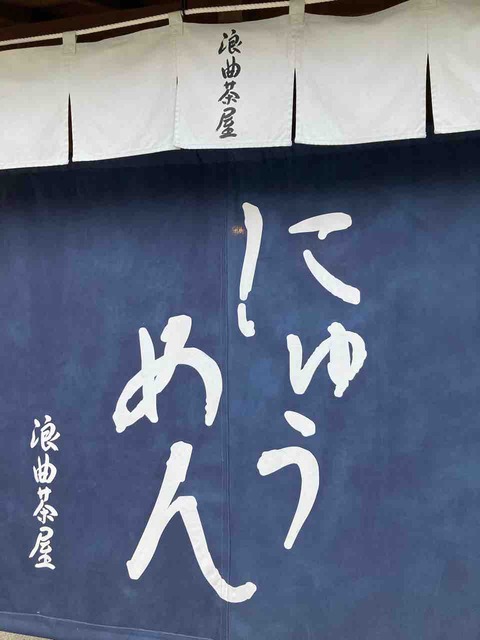 浪曲茶屋
にゅう
めん
浪曲茶屋